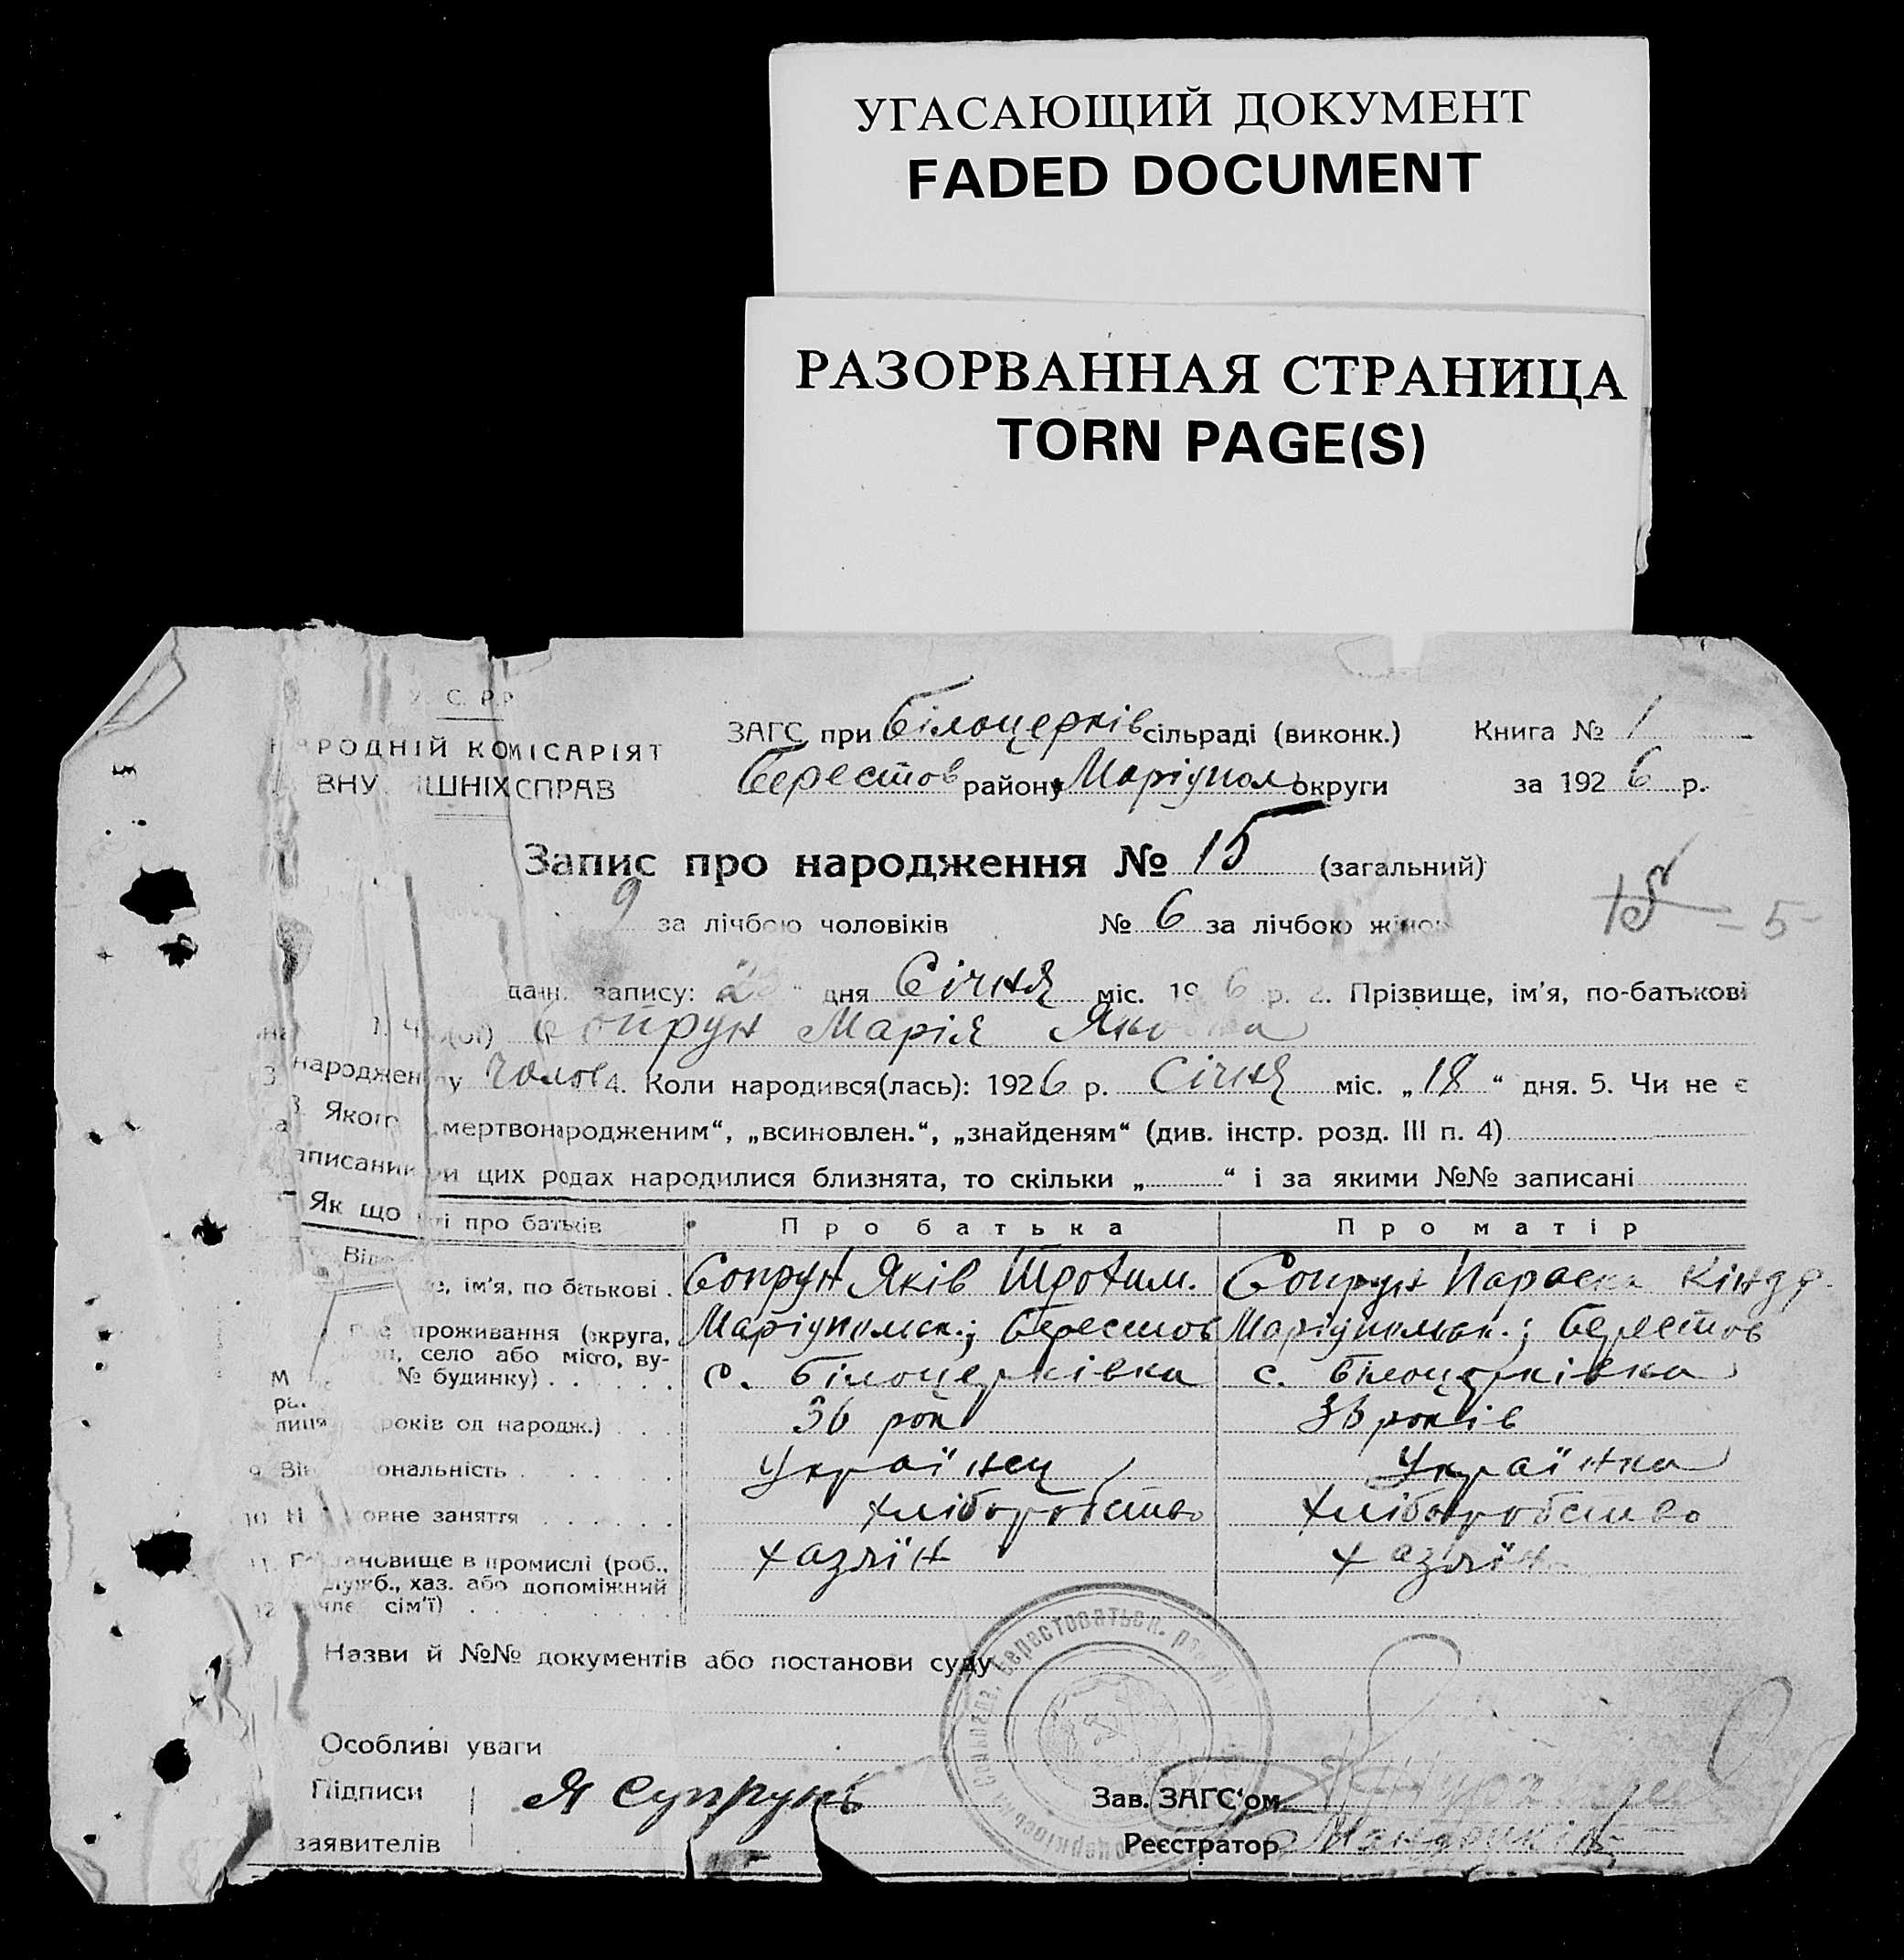 УГАСАЮЩИЙ ДОКУМЕНТ
FADED DOCUMENT
РАЗОРВАННАЯ СТРАНИЦА
TORN PAGE(S)
С. Р. Р.
НАРОДНІЙ КОМІСАРІЯТ
ВНУ ІШНІХ СПРАВ
ЗАГС при Білоцерків сільраді (виконк.) Книга № 1
Берестов району Маріупол округи за 1926 р.
Запис про народження № 15 (загальний)
9 за лічбою чоловіків № 6 за лічбою жінок
15 – 5
запису: дня Січня міс. 19 6 р. 2. Прізвище, ім'я, по-батькові
Сопрун Марія
3 народжен у 4. Коли народився(лась): 1926 р. Січня міс. „18“ дня. 5. Чи не є
Якого „мертвонародженим“, „всиновлен.“, „знайденям“ (див. інстр. розд. III п. 4)
аписаний
ри цих родах народилися близнята, то скільки „ “ і за якими №№ записані
Як що
і про батьків Про батька Про матір
Від
е, ім'я, по батькові . Сопрун Яків Сопрун Параска Кіндр.
проживання (округа, Маріупольск.; Берестов Маріупольск.; Берестов
село або місто, ву-
№ будинку) . с. Білоцерківка с. Білоцерківка
лиця
(років од народж.) . 36 рок 36 років
9. Ві ональність . Українец Українка
10. овне заняття . хліборобство хліборобство
11. ановище в промислі (роб., хазяїн хазяїн
служб., хаз. або допоміжний
12 член сім'ї) .
Назви й №№ документів або постанови суду
Особливі уваги
Підписи Я Супрунъ Зав. ЗАГС'ом
заявителів Реєстратор